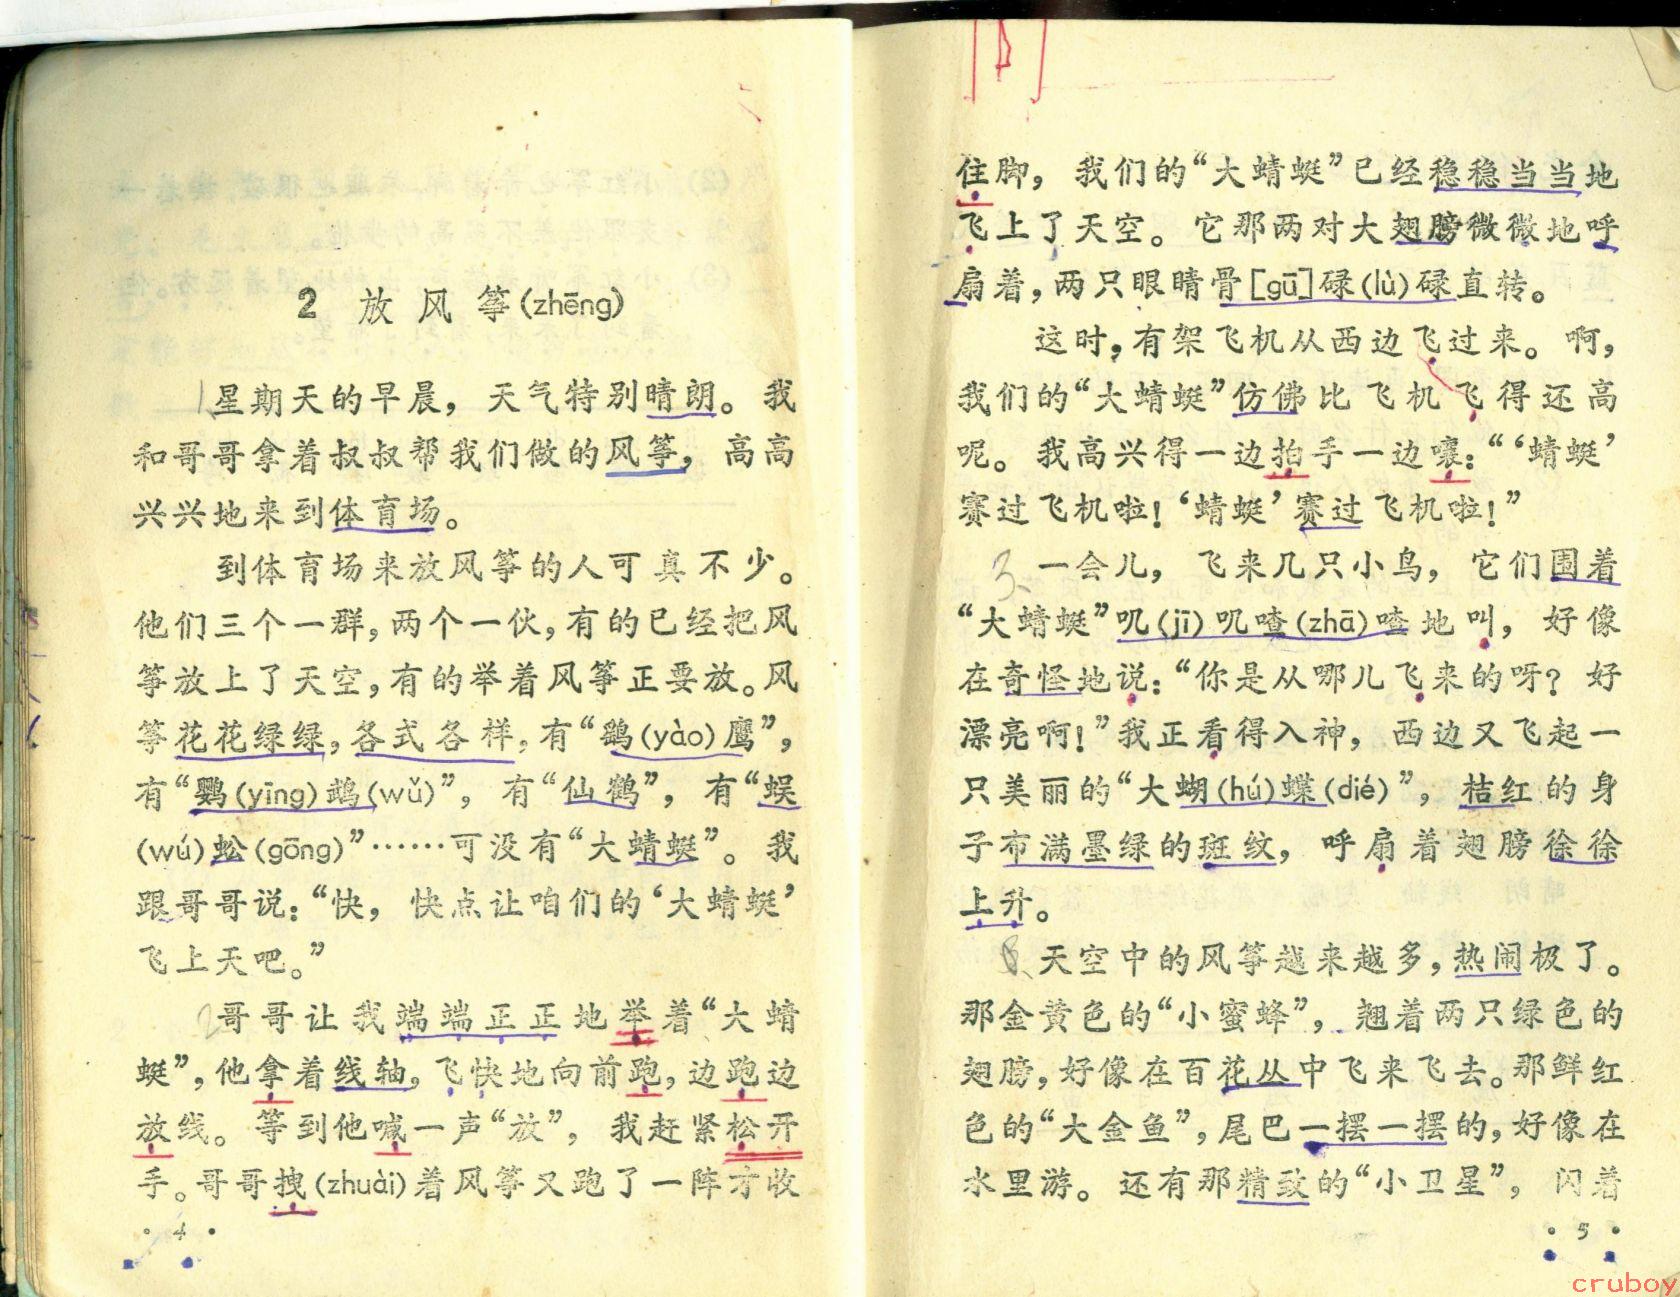 2 放风筝(zhēng)
星期天的早晨，天气特别晴朗。我
和哥哥拿着叔叔帮我们做的风筝，高高
兴兴地来到体育场。
到体育场来放风筝的人可真不少。
他们三个一群，两个一伙，有的已经把风
筝放上了天空，有的举着风筝正要放。风
筝花花绿绿，各式各样，有“鹞(yào)鹰”，
有“鹦(yīng)鹉(wǔ)”，有“仙鹤”，有“蜈
(wú)蚣(gōng)”……可没有“大蜻蜓”。我
跟哥哥说：“快，快点让咱们的‘大蜻蜓’
飞上天吧。”
哥哥让我端端正正地举着“大蜻
蜓”，他拿着线轴，飞快地向前跑，边跑边
放线。等到他喊一声“放”，我赶紧松开
手。哥哥拽(zhuài)着风筝又跑了一阵才收
·4·
住脚，我们的“大蜻蜓”已经稳稳当当地
飞上了天空。它那两对大翅膀微微地呼
扇着，两只眼睛骨[gū]碌(lù)碌直转。
这时，有架飞机从西边飞过来。啊，
我们的“大蜻蜓”仿佛比飞机飞得还高
呢。我高兴得一边拍手一边嚷：“‘蜻蜓’
赛过飞机啦！‘蜻蜓’赛过飞机啦！”
3、一会儿，飞来几只小鸟，它们围着
“大蜻蜓”叽(jī)叽喳(zhā)喳地叫，好像
在奇怪地说：“你是从哪儿飞来的呀？好
漂亮啊！”我正看得入神，西边又飞起一
只美丽的“大蝴(hú)蝶(dié)”，桔红的身
子布满墨绿的斑纹，呼扇着翅膀徐徐
上升。
天空中的风筝越来越多，热闹极了。
那金黄色的“小蜜蜂”，翘着两只绿色的
翅膀，好像在百花丛中飞来飞去。那鲜红
色的“大金鱼”，尾巴一摆一摆的，好像在
水里游。还有那精致的“小卫星”，闪着
·5·
cruboy